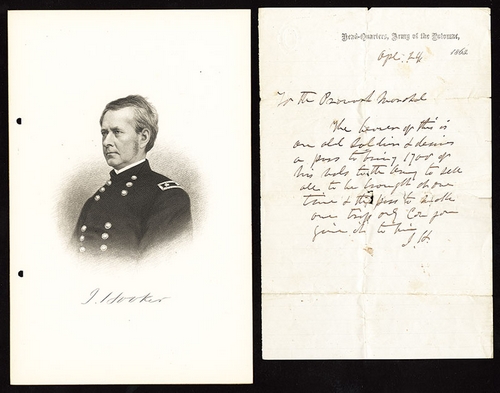 J. Hooker
Head-Quarters, Army of the Potomac,
Apl: 24 1863
To the Provost Marshal
The bearer of this is
an old Soldier & desires
a pass to bring 1700 of
his to the Army to sell
all to be brought at one
time & the pass to make
one trip only Can you
give it to him
J. H